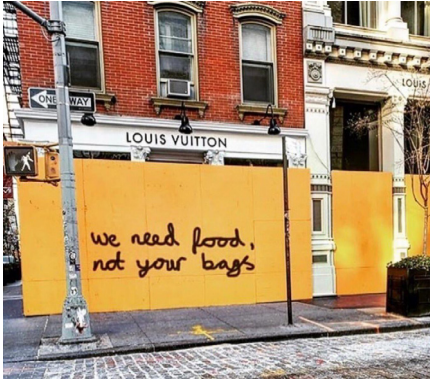 ONE WAY
LOUIS VUITTON
LOUIS
we need food,
not your bags